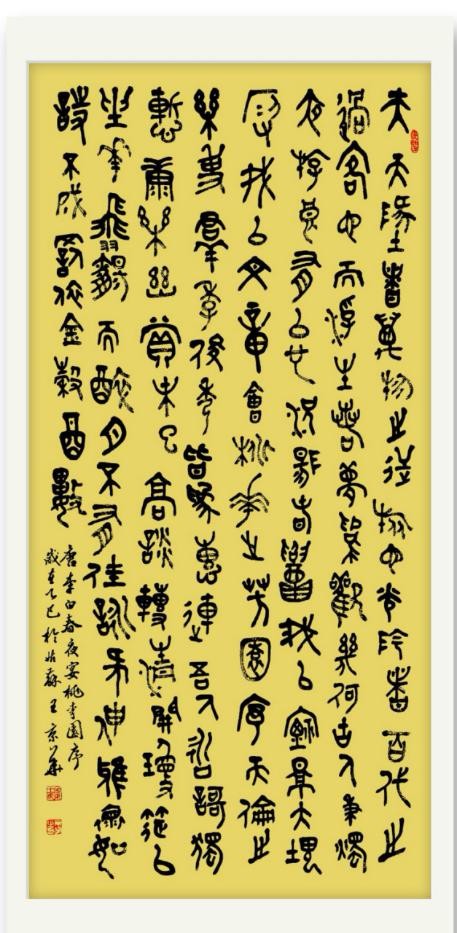 夫天地者萬物之逆旅也光陰者百代之
過客也而浮生若夢為歡幾何古人秉燭
夜遊良有以也況陽春召我以煙景大塊
假我以文章會桃花之芳園序天倫之
樂事群季俊秀皆為惠連吾人詠歌獨
慚康樂幽賞未已高談轉清開瓊筵以
坐花飛羽觴而醉月不有佳詠何伸雅懷如
詩不成罰依金穀酒數
唐李白春夜宴桃李園序
歲在乙巳於姑蘇王京華